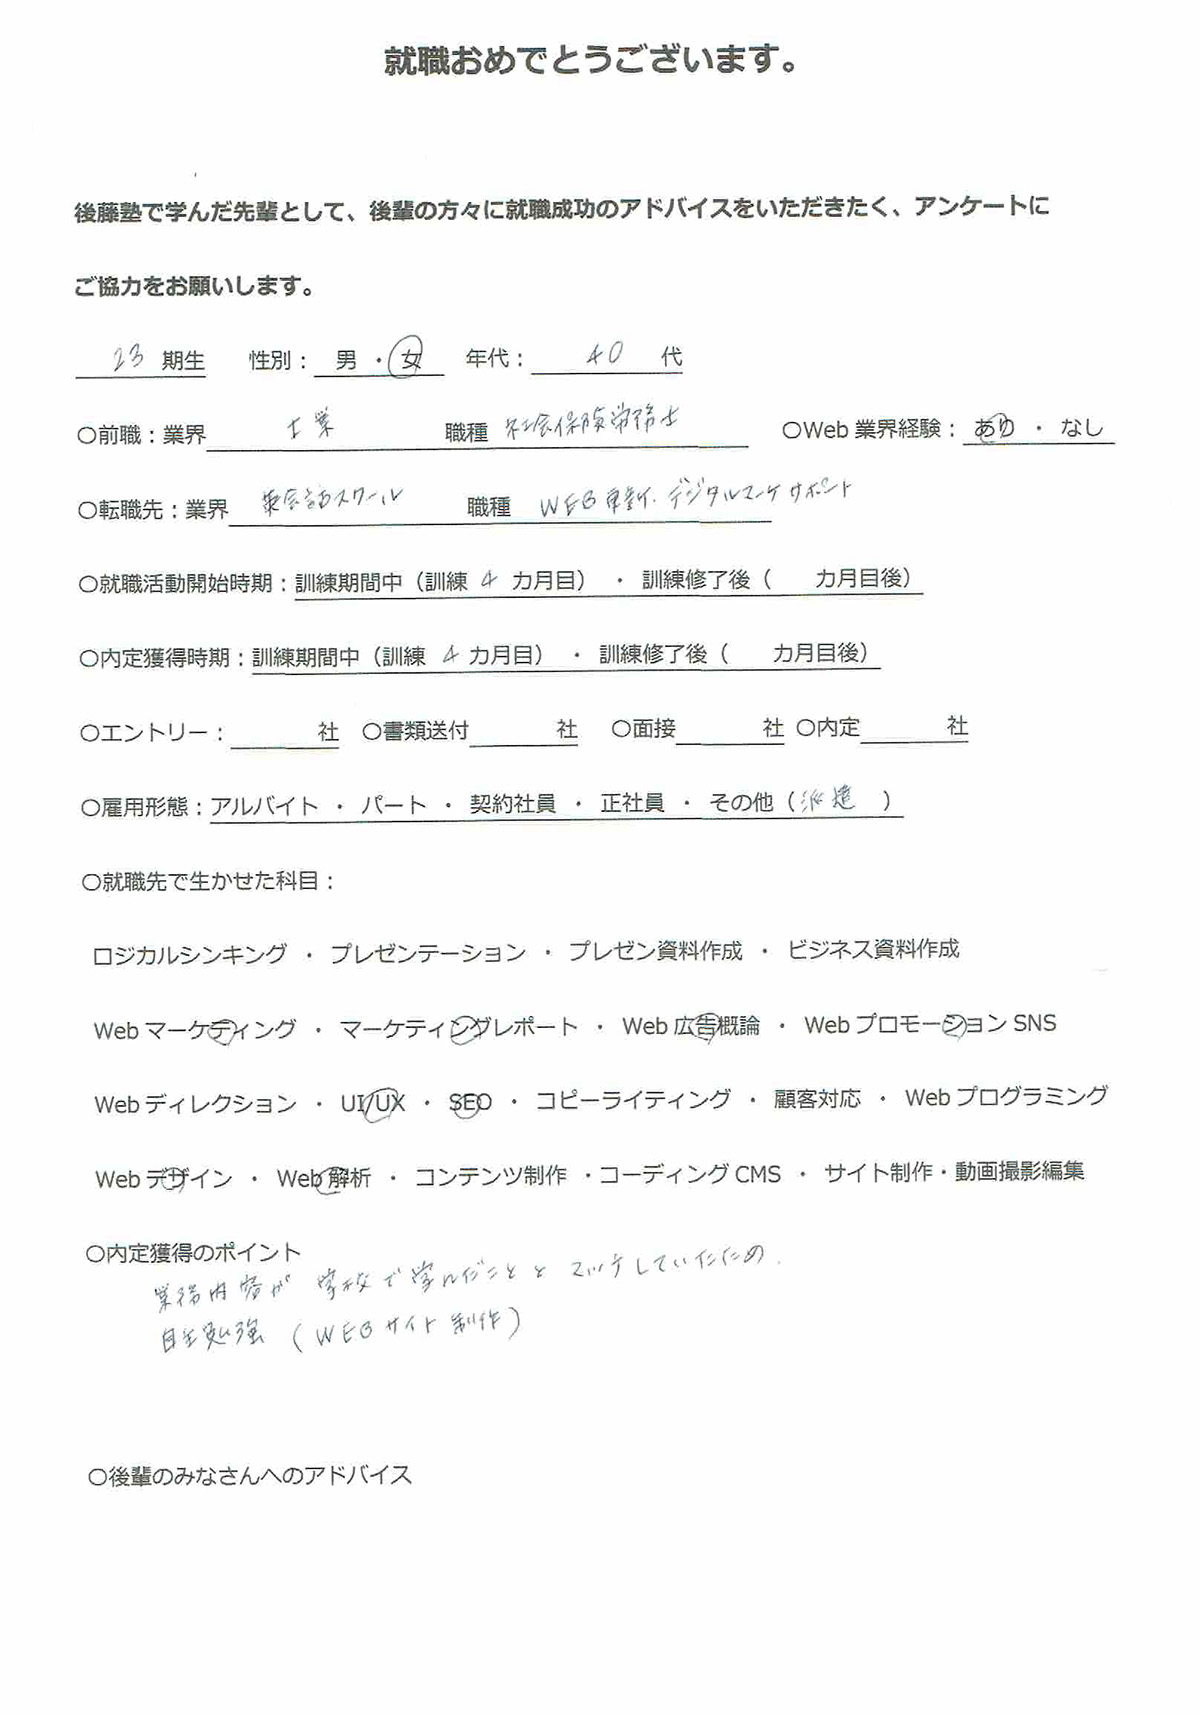 就職おめでとうございます。
後藤塾で学んだ先輩として、後輩の方々に就職成功のアドバイスをいただきたく、アンケートに
ご協力をお願いします。
23 期生 性別: 男 ・ 女 年代: 40 代
○前職:業界 士業 職種 社会保険労務士 ○Web 業界経験: あり ・ なし
○転職先:業界 英会話スクール 職種 WEB更新、デジタルマーケサポート
○就職活動開始時期:訓練期間中(訓練 4 カ月目) ・ 訓練修了後( カ月目後)
○内定獲得時期:訓練期間中(訓練 4 カ月目) ・ 訓練修了後( カ月目後)
○エントリー: 社 ○書類送付 社 ○面接 社 ○内定 社
○雇用形態:アルバイト ・ パート ・ 契約社員 ・ 正社員 ・ その他(派遣 )
○就職先で生かせた科目:
ロジカルシンキング ・ プレゼンテーション ・ プレゼン資料作成 ・ ビジネス資料作成
Web マーケティング ・ マーケティングレポート ・ Web 広告概論 ・ Web プロモーション SNS
Web ディレクション ・ UI/UX ・ SEO ・ コピーライティング ・ 顧客対応 ・ Web プログラミング
Web デザイン ・ Web 解析 ・ コンテンツ制作 ・コーディング CMS ・ サイト制作・動画撮影編集
○内定獲得のポイント
業務内容が学校で学んだこととマッチしていたため.
自主勉強(WEBサイト制作)
○後輩のみなさんへのアドバイス